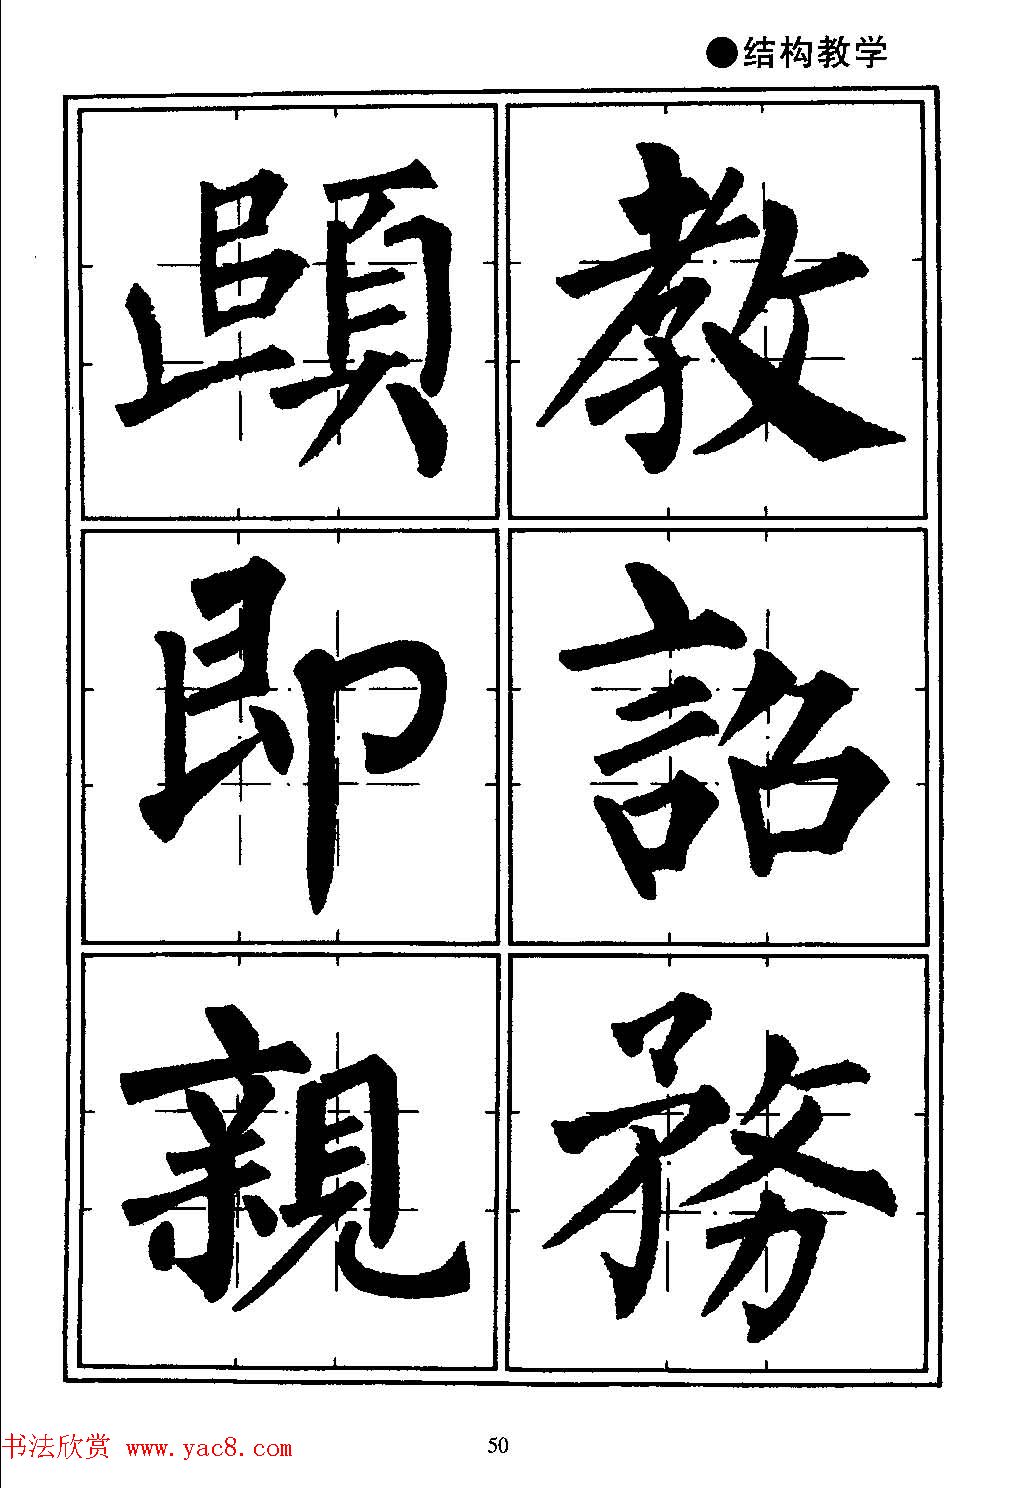 ●结构教学
教詔務
頤即親
书法欣赏 www.yac8.com
50